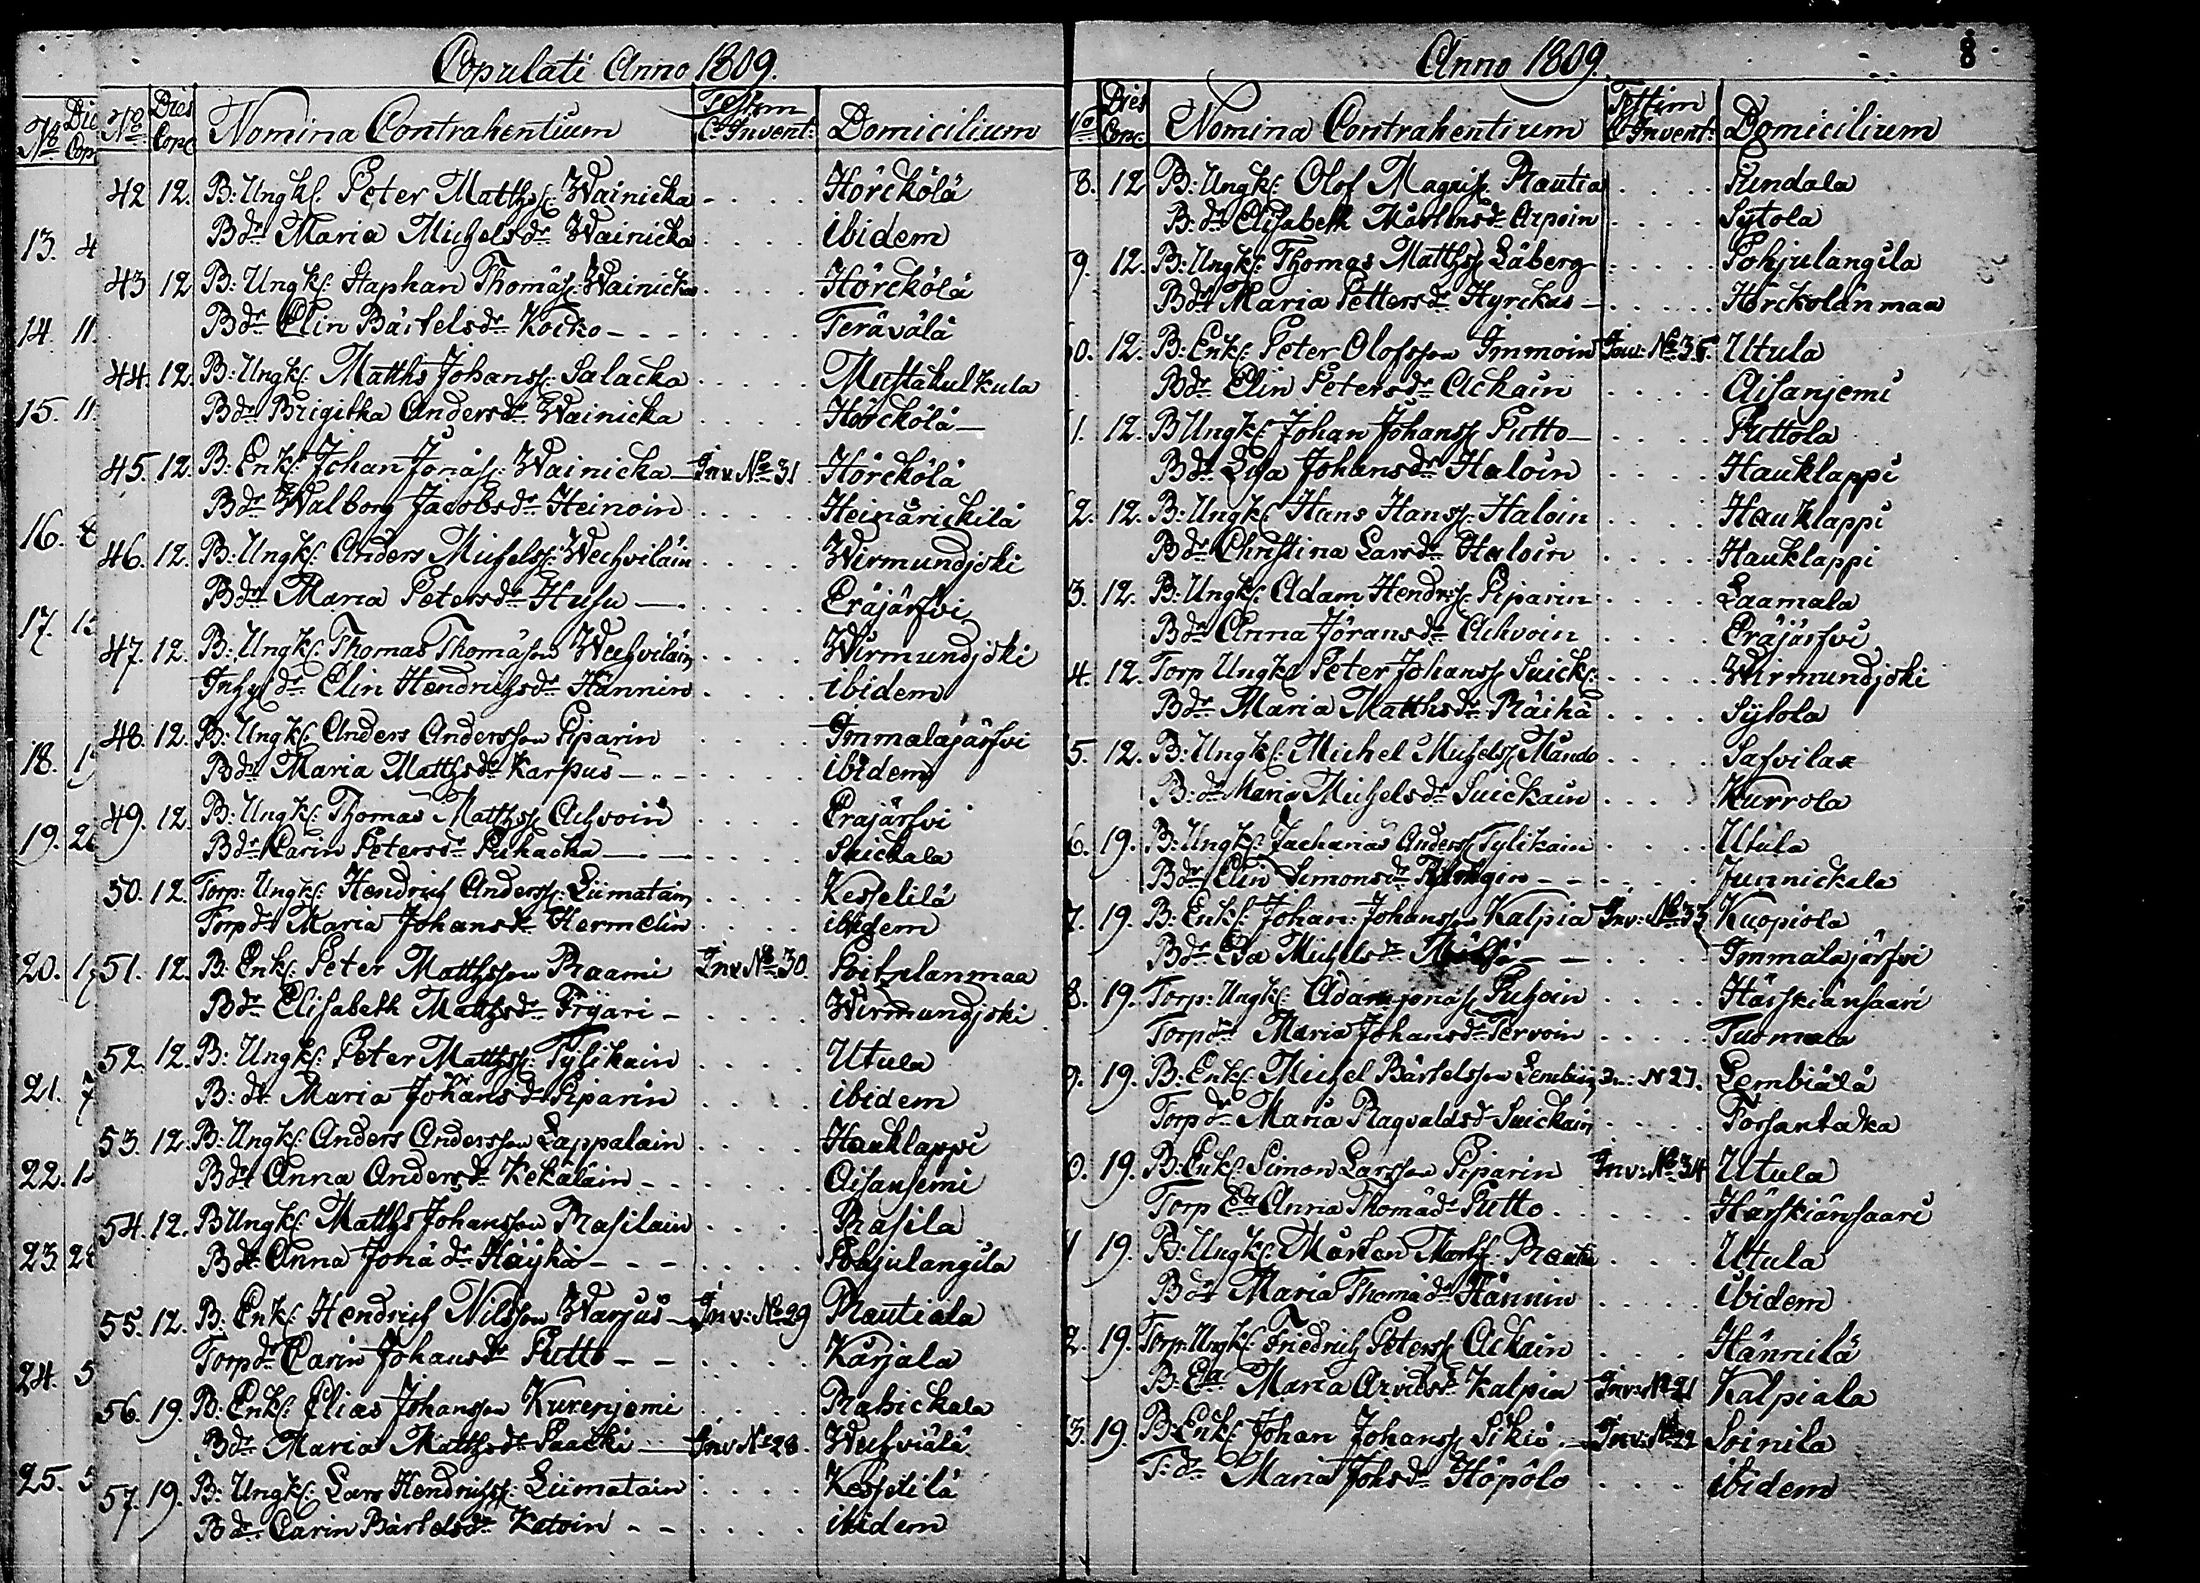 Copulati Anno 1809.
No Dies Cop: Nomina Contrahentium Testim & Invent: Domicilium
42 12. B: Ungk: Peter Matthss: Wainicka Hörckölä
Bdr Maria Michelsdr Wainicka ibidem
43 12 B: Ungk: Staphan Thomäss: Wainicka Hörckölä
Bdr Elin Bärtelsdr Kocko Terävälä
44. 12. B: Ungk: Matths Johanss: Salacka Mustakulkula
Bdr Brigitha Andersdr Wainicka Hörckölä
45. 12. B: Enk: Johan Jonäss: Wainicka Inv No 31 Hörckölä
Bdr Walborg Jacobsdr Heinoin Heinärickilä
46. 12. B: Ungk: Anders Michelss: Wechviläin Wirmundjoki
Bdr Maria Petersdr Husu Eräjärfvi
47. 12. B: Ungk: Thomas Thomäson Wechviläin Wirmundjoki
Inhys dr Elin Hendrichsdr Hännin ibidem
48. 12. B: Ungk: Anders Andersson Piparin Immalajärfvi
Bdr Maria Matthsdr Karpus ibidem
49. 12. B: Ungk: Thomas Matthss Achvoin Eräjärfvi
Bdr Carin Petersdr Puhacka Suickala
50. 12. Torp: Ungk: Hendrich Anderss: Liimatain Kesselilä
Torp dr Maria Johansdr Hermelin ibidem
51. 12. B: Enk: Peter Matthsson Raami Inv No 30 Poitzlanmaa
Bdr Elisabeth Matthsdr Fryari Wirmundjoki
52. 12. B: Ungk: Peter Matthss: Tylikain Utula
B: dr Maria Johansdr Piparin ibidem
53. 12. B: Ungk: Anders Andersson Lappalain Hauklappi
Bdr Anna Andersdr Kekäläin Aisaniemi
54. 12. B Ungk: Matths Johansson Rasilain Rasila
Bdr Anna Jonädr Häyhä Pohjulangila
55. 12. B: Enk: Hendrich Nilsson Warpus Inv: No 29 Rautiala
Torp dr Carin Johansdr Putto Kärjala
56. 19. B: Enk: Elias Johansson Kurenjemi Rahickala
Bdr Maria Matthsdr Paacki Inv No 28. Wechviälä
57. 19. B: Ungk: Lars Hendrichss: Liimatain Kesselilä
Bdr Carin Bärtelsdr Katoin ibidem
No Die Cop
13. 4
14. 11.
15. 11.
16.
17.
18.
19.
20.
21. 7
22.
23. 28
24. 5
25. 5
Anno 1809. 8
No Dies Cop: Nomina Contrahentium Testim & Invent: Domicilium
8. 12 B: Ungk: Olof Magniss: Rautia Pundala
B: dr Elisabeth Mårtensdr Arpoin Sytola
9. 12. B: Ungk: Thomas Matthss Låberg Pohjulangila
Bdr Maria Pettersdr Hyrckäs Hörckolänmaa
0. 12. B: Enk: Peter Olofsson Immoin Inv: No 35. Utula
Bdr Elin Petersdr Ackain Aisanjemi
1. 12. B Ungk: Johan Johanss Putto Puttola
Bdr Lisa Johansdr Haloin Hauklappi
2. 12. B: Ungk: Hans Hanss: Haloin Hauklappi
Bdr Christina Larsdr Haloin Hauklappi
3. 12. B: Ungk: Adam Hendrss: Piparin Laamala
Bdr Anna Jöransdr Achvoin Eräjärfvi
4. 12. Torp Ungk: Peter Johanss Suick: Wirmundjoki
Bdr Maria Matthsdr Räihä Sytola
5. 12. B: Ungk: Michel Michelss Mändo Safvilax
B: dr Maria Michelsdr Suickain Kurrola
6. 19. B: Ungk: Zacharias Anderss Tylikain Utula
Bdr Elin Simonsdr Junnickala
7. 19. B: Enk: Johan: Johansson Kalpia Inv: No 33 Kuopiola
Bdr Eva Michelsdr Immalajärfvi
8. 19. Torp: Ungk: Adam Jonäss Puhoin Härskiänsaari
Torp dr Maria Johansdr Tervoin Tuomala
9. 19. B: Enk: Michel Bärtelsson Lembiäin In: N 27. Lembiälä
Torp dr Maria Ragvaldsdr Suickain Torsantaka
0. 19. B: Enk: Simon Larsson Piparin Inv: No 34 Utula
Torp Ea Anna Thomädr Putto Härskiänsaari
1 19. B: Ungk: Mårten Martss: Rautia Utula
Bdr Maria Thomädr Hännin ibidem
2. 19. Torp: Ungk: Friedrich Peterss Ackain Hännilä
B: Ea Maria Arvidsdr Kalpia Inv: No 21 Kalpiala
3. 19. B: Enk: Johan Johanss Sikiö Inv: No 22 Soinila
T: dr Maria Johsdr Höpölö ibidem